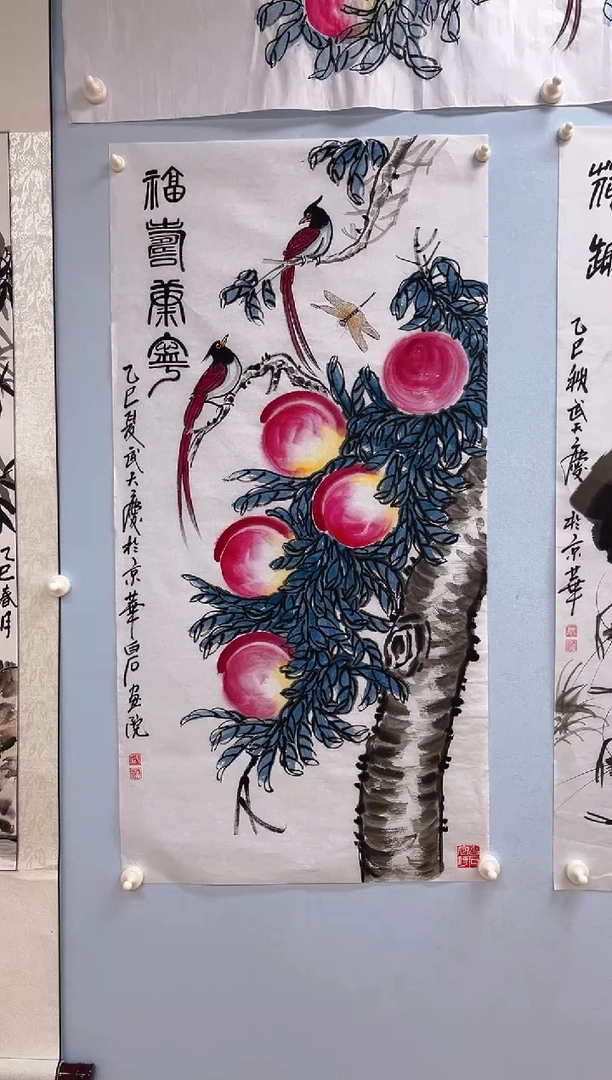 福壽康寧
乙巳夏武大慶於京華白石画院
乙巳秋武大慶於京華
乙巳春月